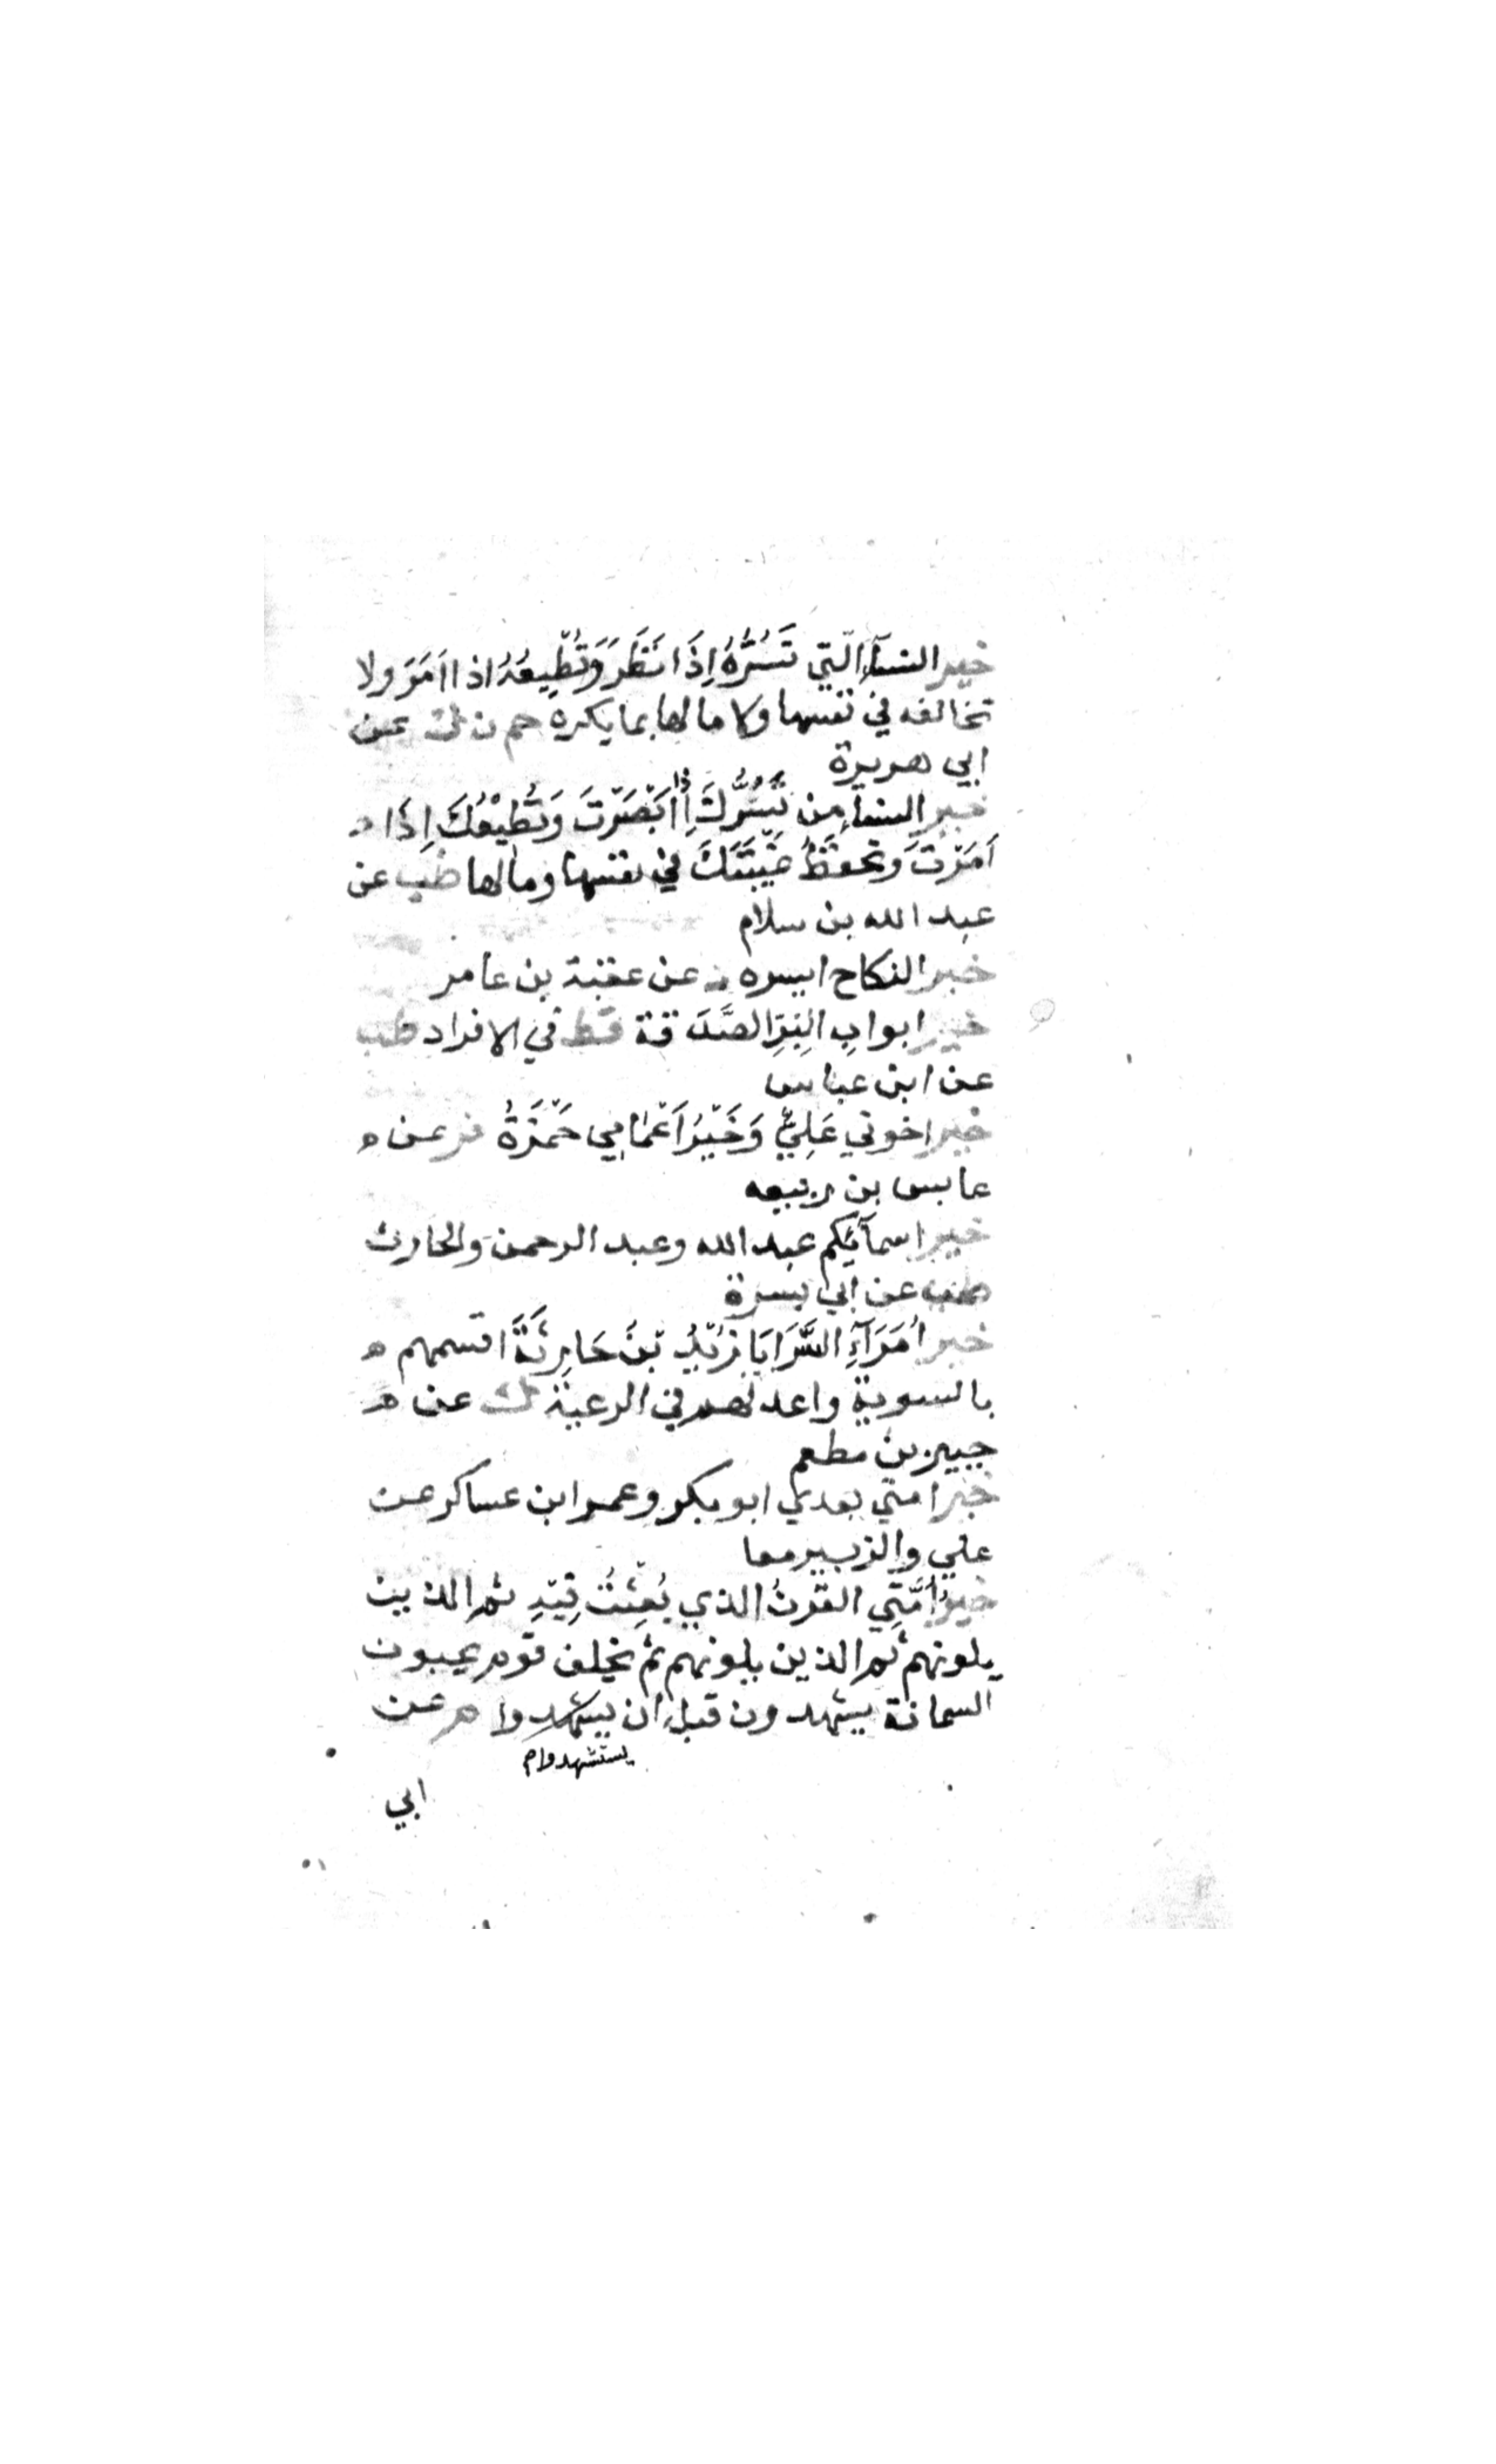 خير النسآءِ الّتي تَسُرُّهُ اِذَا نَظَرَ وَتُطِيعُهُ اذا اَمَرَ ولا
تخالفه في نفسها ولا مالها بما يكره حم ن ك عن
ابي هريرة
خير النساءِ من تَسُرُّكَ إِذا اَبْصَرْتَ وَتُطِيْعُكَ اِذَا ه
اَمَرْتَ وَتحفَظُ غَيْبَتَكَ في نفسها ومالها طب عن
عبد الله بن سلام
خير النكاح ايسره عن عقبة بن عامر
خير ابوابِ البِرِّ الصَّدَقة قط في الافراد طب
عن ابن عباس
خير اخوتي عَلِيٌّ وَخَيْرُ اَعْمَامِي حَمْزَةُ فر عن ه
عابس بن ربيعه
خير اسمآئِكم عبد الله وعبد الرحمن وَالحارث
طب عن ابي بسرة
خير اُمَرَآءِ السَّرَايَا زَيْدُ بْنُ حَارِثَةَ اقسمهم ه
بالسوية واعدلهم في الرعية ك عن ه
جبير بن مطعم
خير امتي بعدي ابو بكر وعمر ابن عساكر عن
علي والزبير معا
خيرُ اُمَّتِي القرنُ الذي بُعِثْتُ فِيْهِ ثم الذين
يلونهم ثم الذين يلونهم ثم يخلف قوم يحبون
السمانة يشهدون قبل ان يشهدوا م عن
يستشهدوا م
ابي